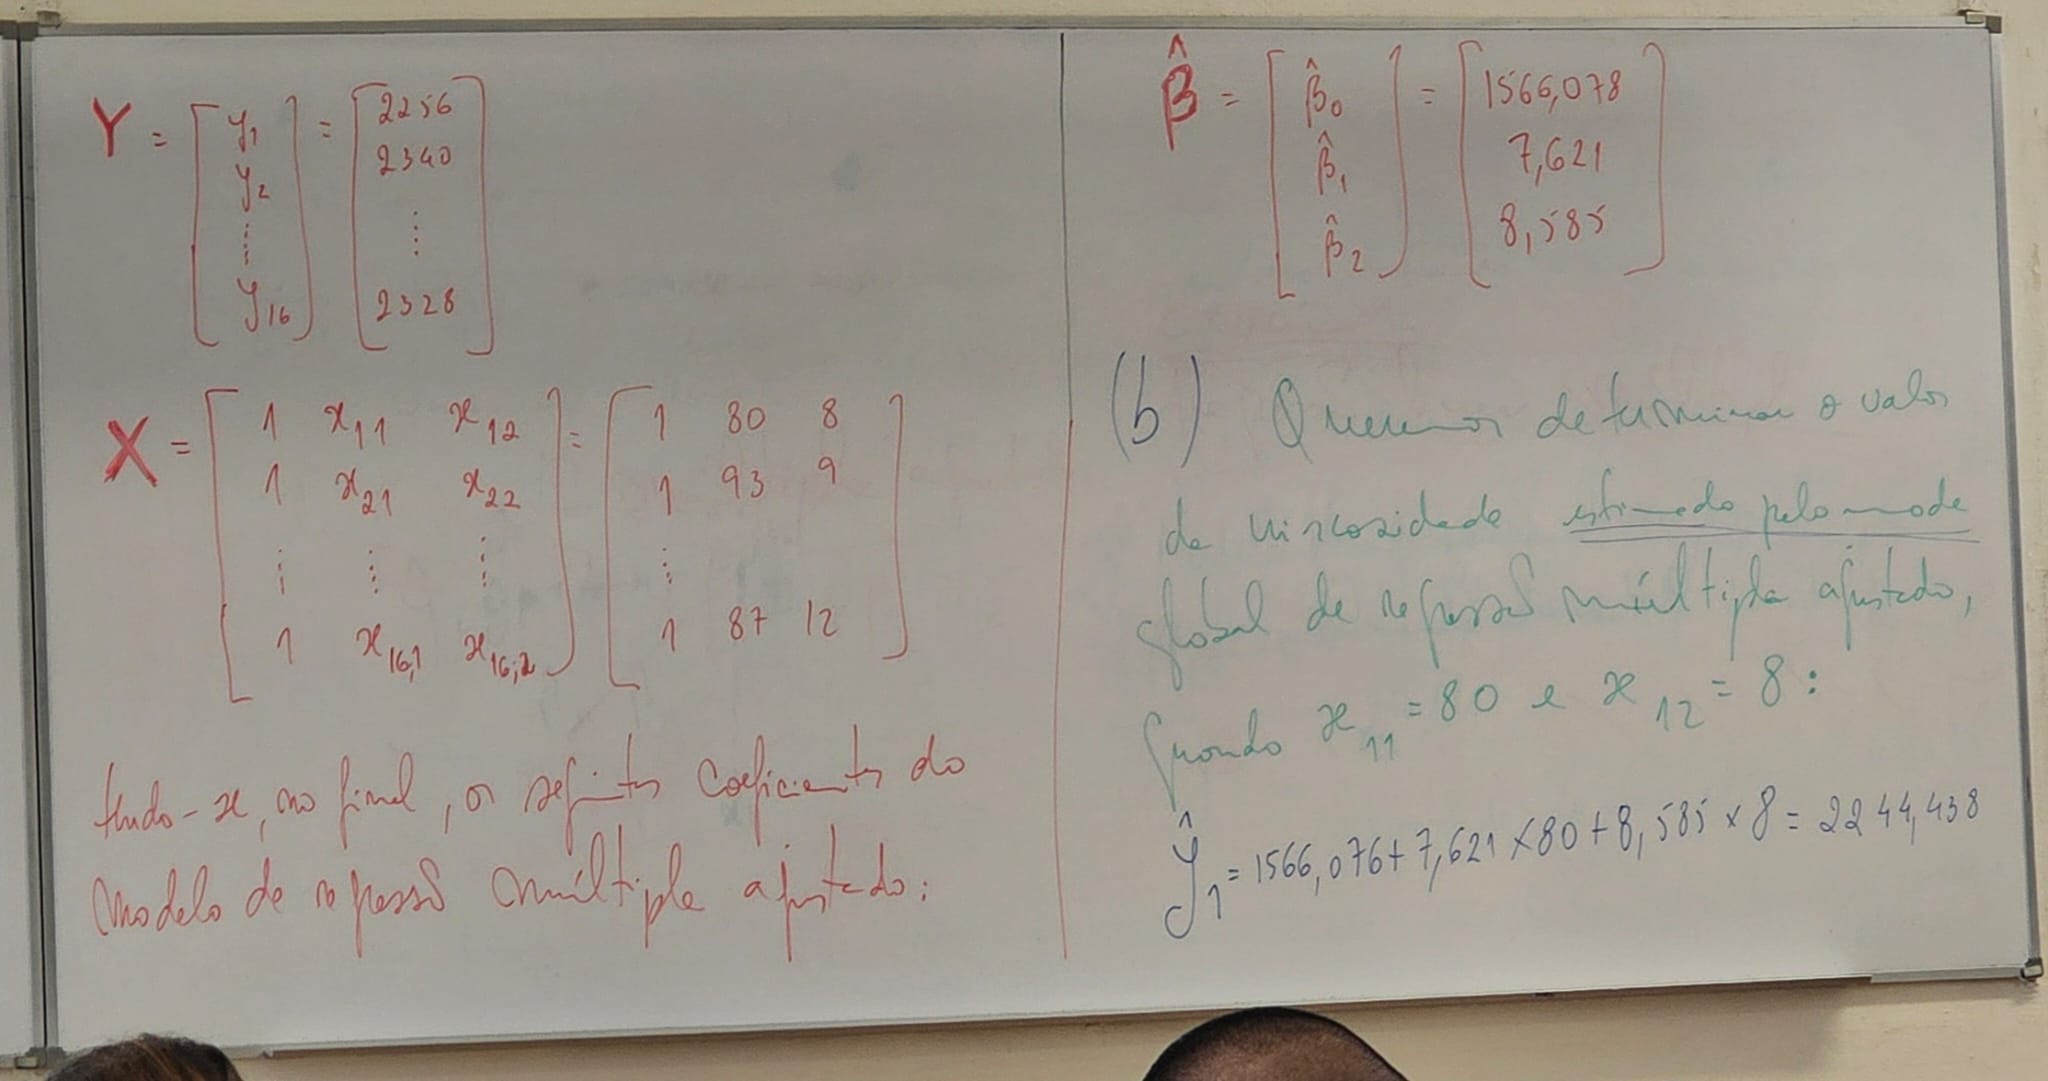 Y = [y₁ y₂ ⋮ y₁₆] = [2256 2340 ⋮ 2328]
X = [1 x₁₁ x₁₂
1 x₂₁ x₂₂
⋮ ⋮ ⋮
1 x₁₆,₁ x₁₆,₂] = [1 80 8
1 93 9
⋮
1 87 12]
tendo-se, no final, os seguintes coeficientes do
modelo de regressão múltipla ajustado:
β̂ = [β̂₀ β̂₁ β̂₂] = [1566,078 7,621 8,585]
(b) Queremos determinar o valor
da viscosidade estimado pelo mode
global de regressão múltipla ajustado,
quando x₁₁ = 80 e x₁₂ = 8:
ŷ₁ = 1566,076 + 7,621 × 80 + 8,585 × 8 = 2244,438